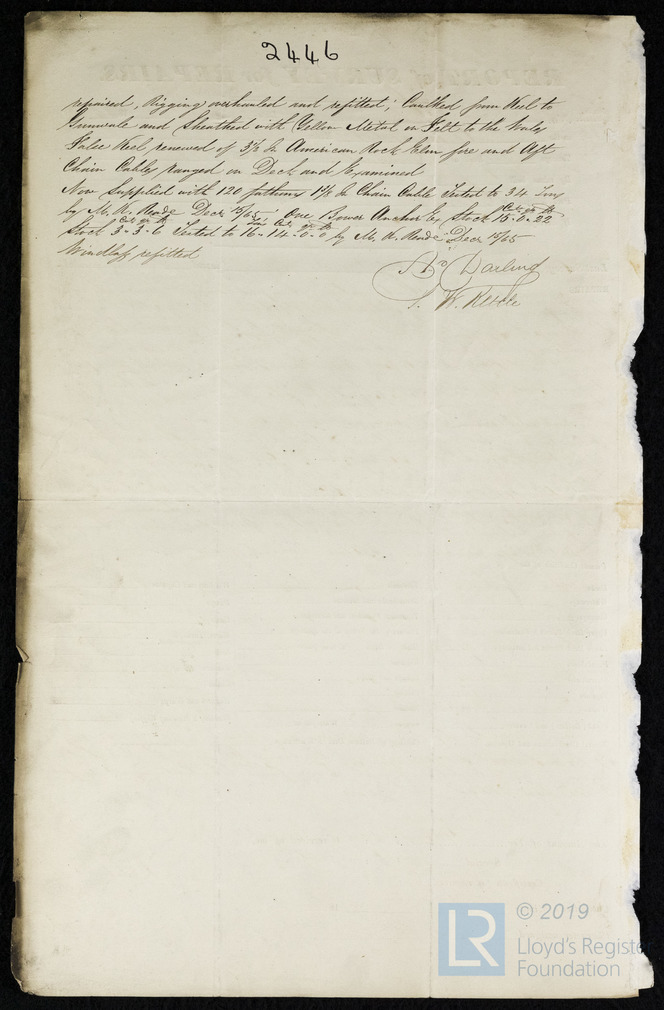 2446
repaired, Rigging overhauled and refitted; Caulked from Keel to
Gunwale and Sheathed with Yellow Metal on Felt to the Wales
False Keel renewed of 3½ In American Rock Elm fore and Aft
Chain Cables ranged on Deck and Examined
Now Supplied with 120 fathoms Chain Cable Tested to 34 Tons
by M. K. Decr 15/65 One Bower Anchor Ex Stock 15.0.22
Stock 3.3.6 Tested to 16.14.0.0 by M. K. Decr 15/65
Windlass refitted
Darling
W.
LR
© 2019
Lloyd's Register
Foundation